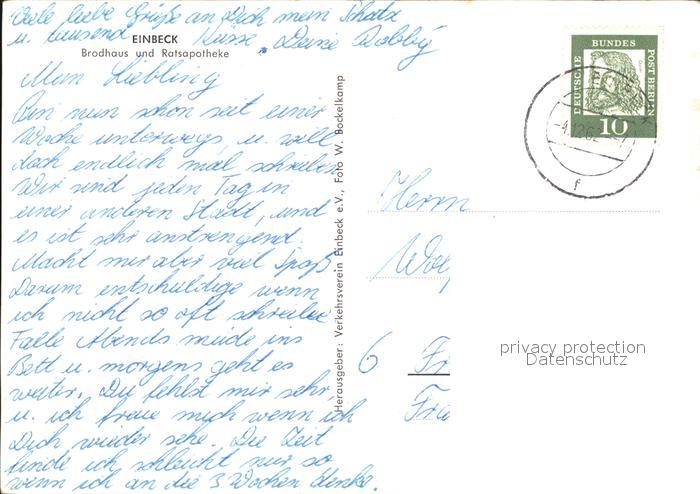 Viele liebe Grüße an Dich mein Schatz
u. tausend Küsse, Deine Bobby
EINBECK
Brodhaus und Ratsapotheke
Mein Liebling
Bin nun schon seit einer
Woche unterwegs, u. will
doch endlich mal schreiben
Wir sind jeden Tag in
einer anderen Stadt, und
es ist sehr anstrengend.
Macht mir aber viel Spaß
Darum entschuldige wenn
ich nicht so oft schreibe
Falle Abends müde ins
Bett u. morgens geht es
weiter. Du fehlst mir sehr,
u. ich freue mich wenn ich
Dich wieder sehe. Die Zeit
finde ich schleicht nur so
wenn ich an die 3 Wochen denke.
Herausgeber: Verkehrsverein Einbeck e.V., Foto W. Bockelkamp
DEUTSCHE BUNDES POST BERLIN
10
-4.12.62
f
Herrn
Wol
6 Fr
Fri
privacy protection
Datenschutz